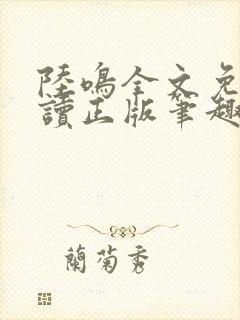 陸鳴全文免
讀正版筆趣
蘭菊秀